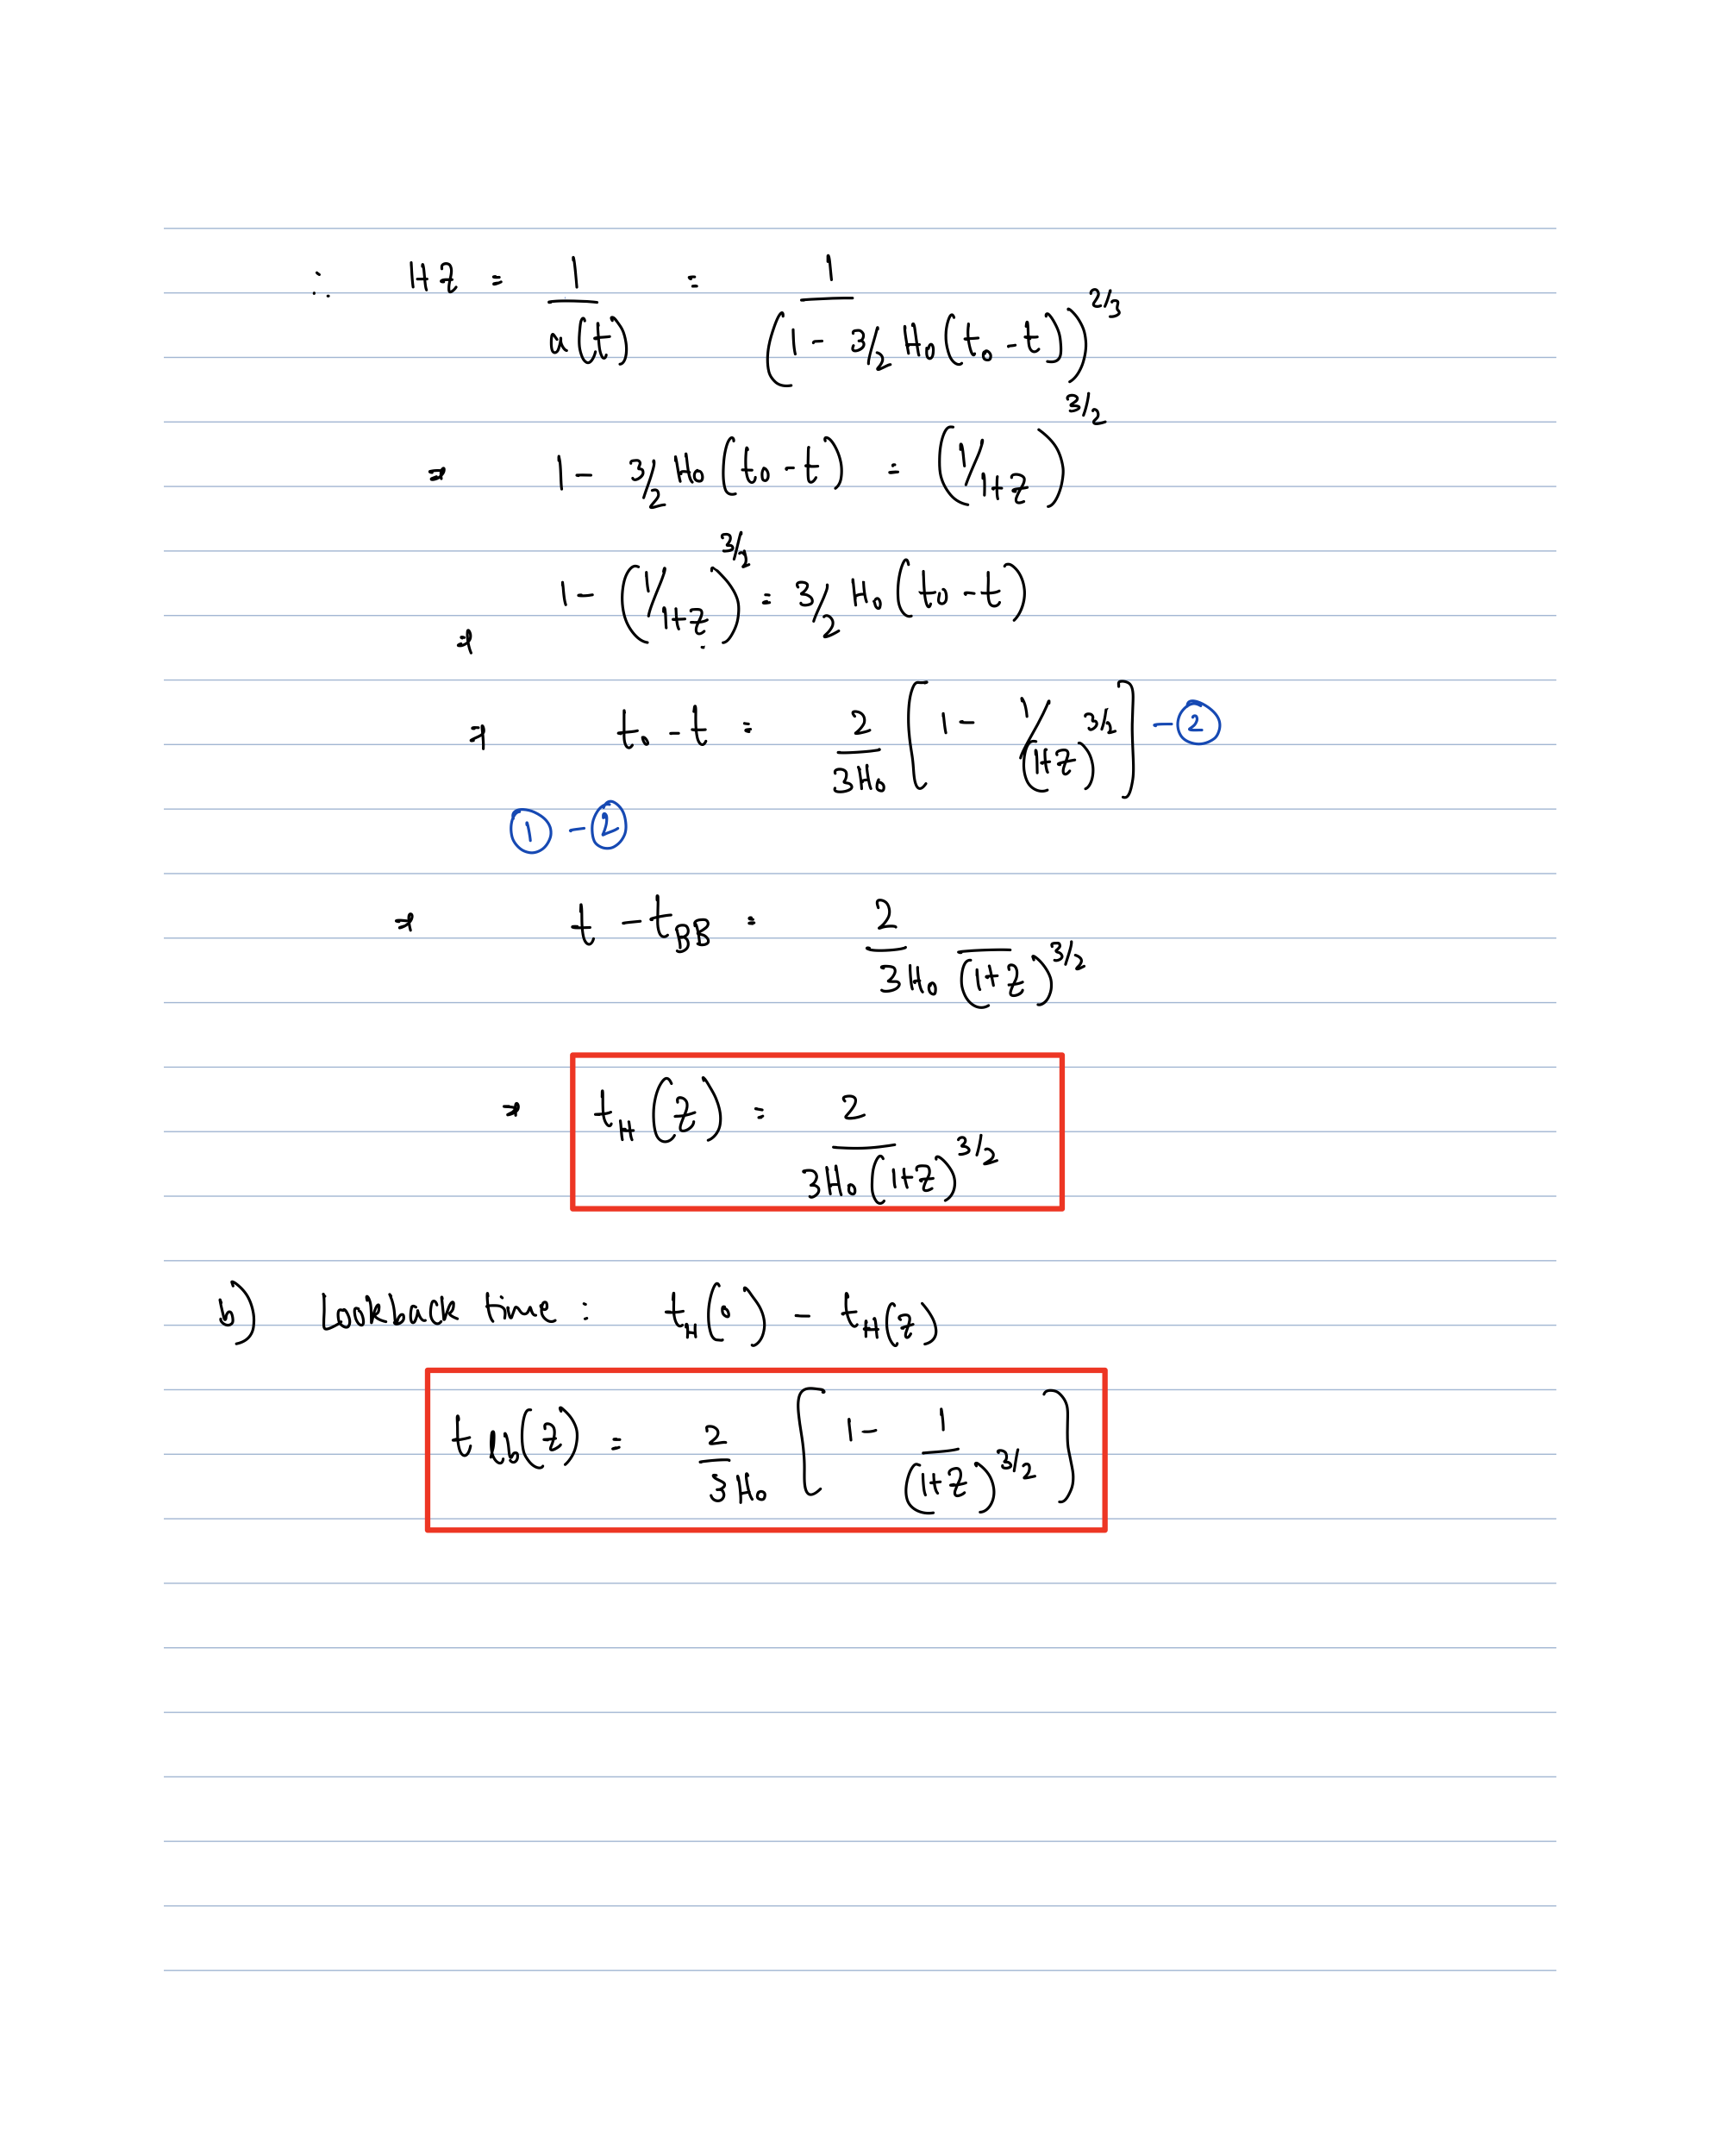 ∴ 1+z = 1/a(t) = 1/(1 - 3/2 H₀(t₀ - t))^(2/3)
⇒ 1 - 3/2 H₀(t₀ - t) = (1/1+z)^(3/2)
⇒ 1 - (1/1+z)^(3/2) = 3/2 H₀(t₀ - t)
⇒ t₀ - t = 2/3H₀ [1 - 1/(1+z)^(3/2)] - ②
① - ②
⇒ t - t_BB = 2/3H₀ (1+z)^(3/2)
⇒ t_H(z) = 2/3H₀(1+z)^(3/2)
b) Lookback time : t_H(0) - t_H(z)
t_lb(z) = 2/3H₀ [1 - 1/(1+z)^(3/2)]